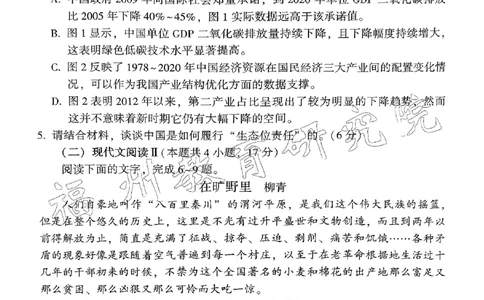 A. 中国政府2009年向国际社会郑重承诺，到2020年单位GDP二氧化碳排放
比2005年下降40%~45%，图1实际数据远高于该承诺值。
B. 图1显示，中国单位GDP二氧化碳排放量持续下降，且下降幅度持续增大，
这表明绿色低碳技术水平显著提高。
C. 图2反映了1978~2020年中国经济资源在国民经济三大产业间的配置变化情
况，可以作为我国产业结构优化方面的数据支撑。
D. 图2表明2012年以来，第二产业占比呈现出了较为明显的下降趋势，然而
这并不意味着新时期它仍有大幅下降的空间。
5. 请结合材料，谈谈中国是如何履行“生态位责任”的。（6分）
（二）现代文阅读Ⅱ（本题共4小题，17分）
阅读下面的文字，完成6~9题。
在旷野里 柳青
人们自豪地叫作“八百里秦川”的渭河平原，是我们这个伟大民族的摇篮，
但是在整个悠久的历史上，这里是不光有过升平盛世和文物创造，而且到两年以
前得解放为止，简直是充满了征战、掠夺、压迫、剥削、痛苦和饥饿……各种矛
盾的现象好像是跟随着空气普遍到每一个村庄，以至于在老革命根据地生活过十
几年的干部初来的时候，不禁为这个全国著名的小麦和棉花的出产地那么富足又
那么贫困、那么凶狠又那么可怜而大吃一惊。
福州教育研究院